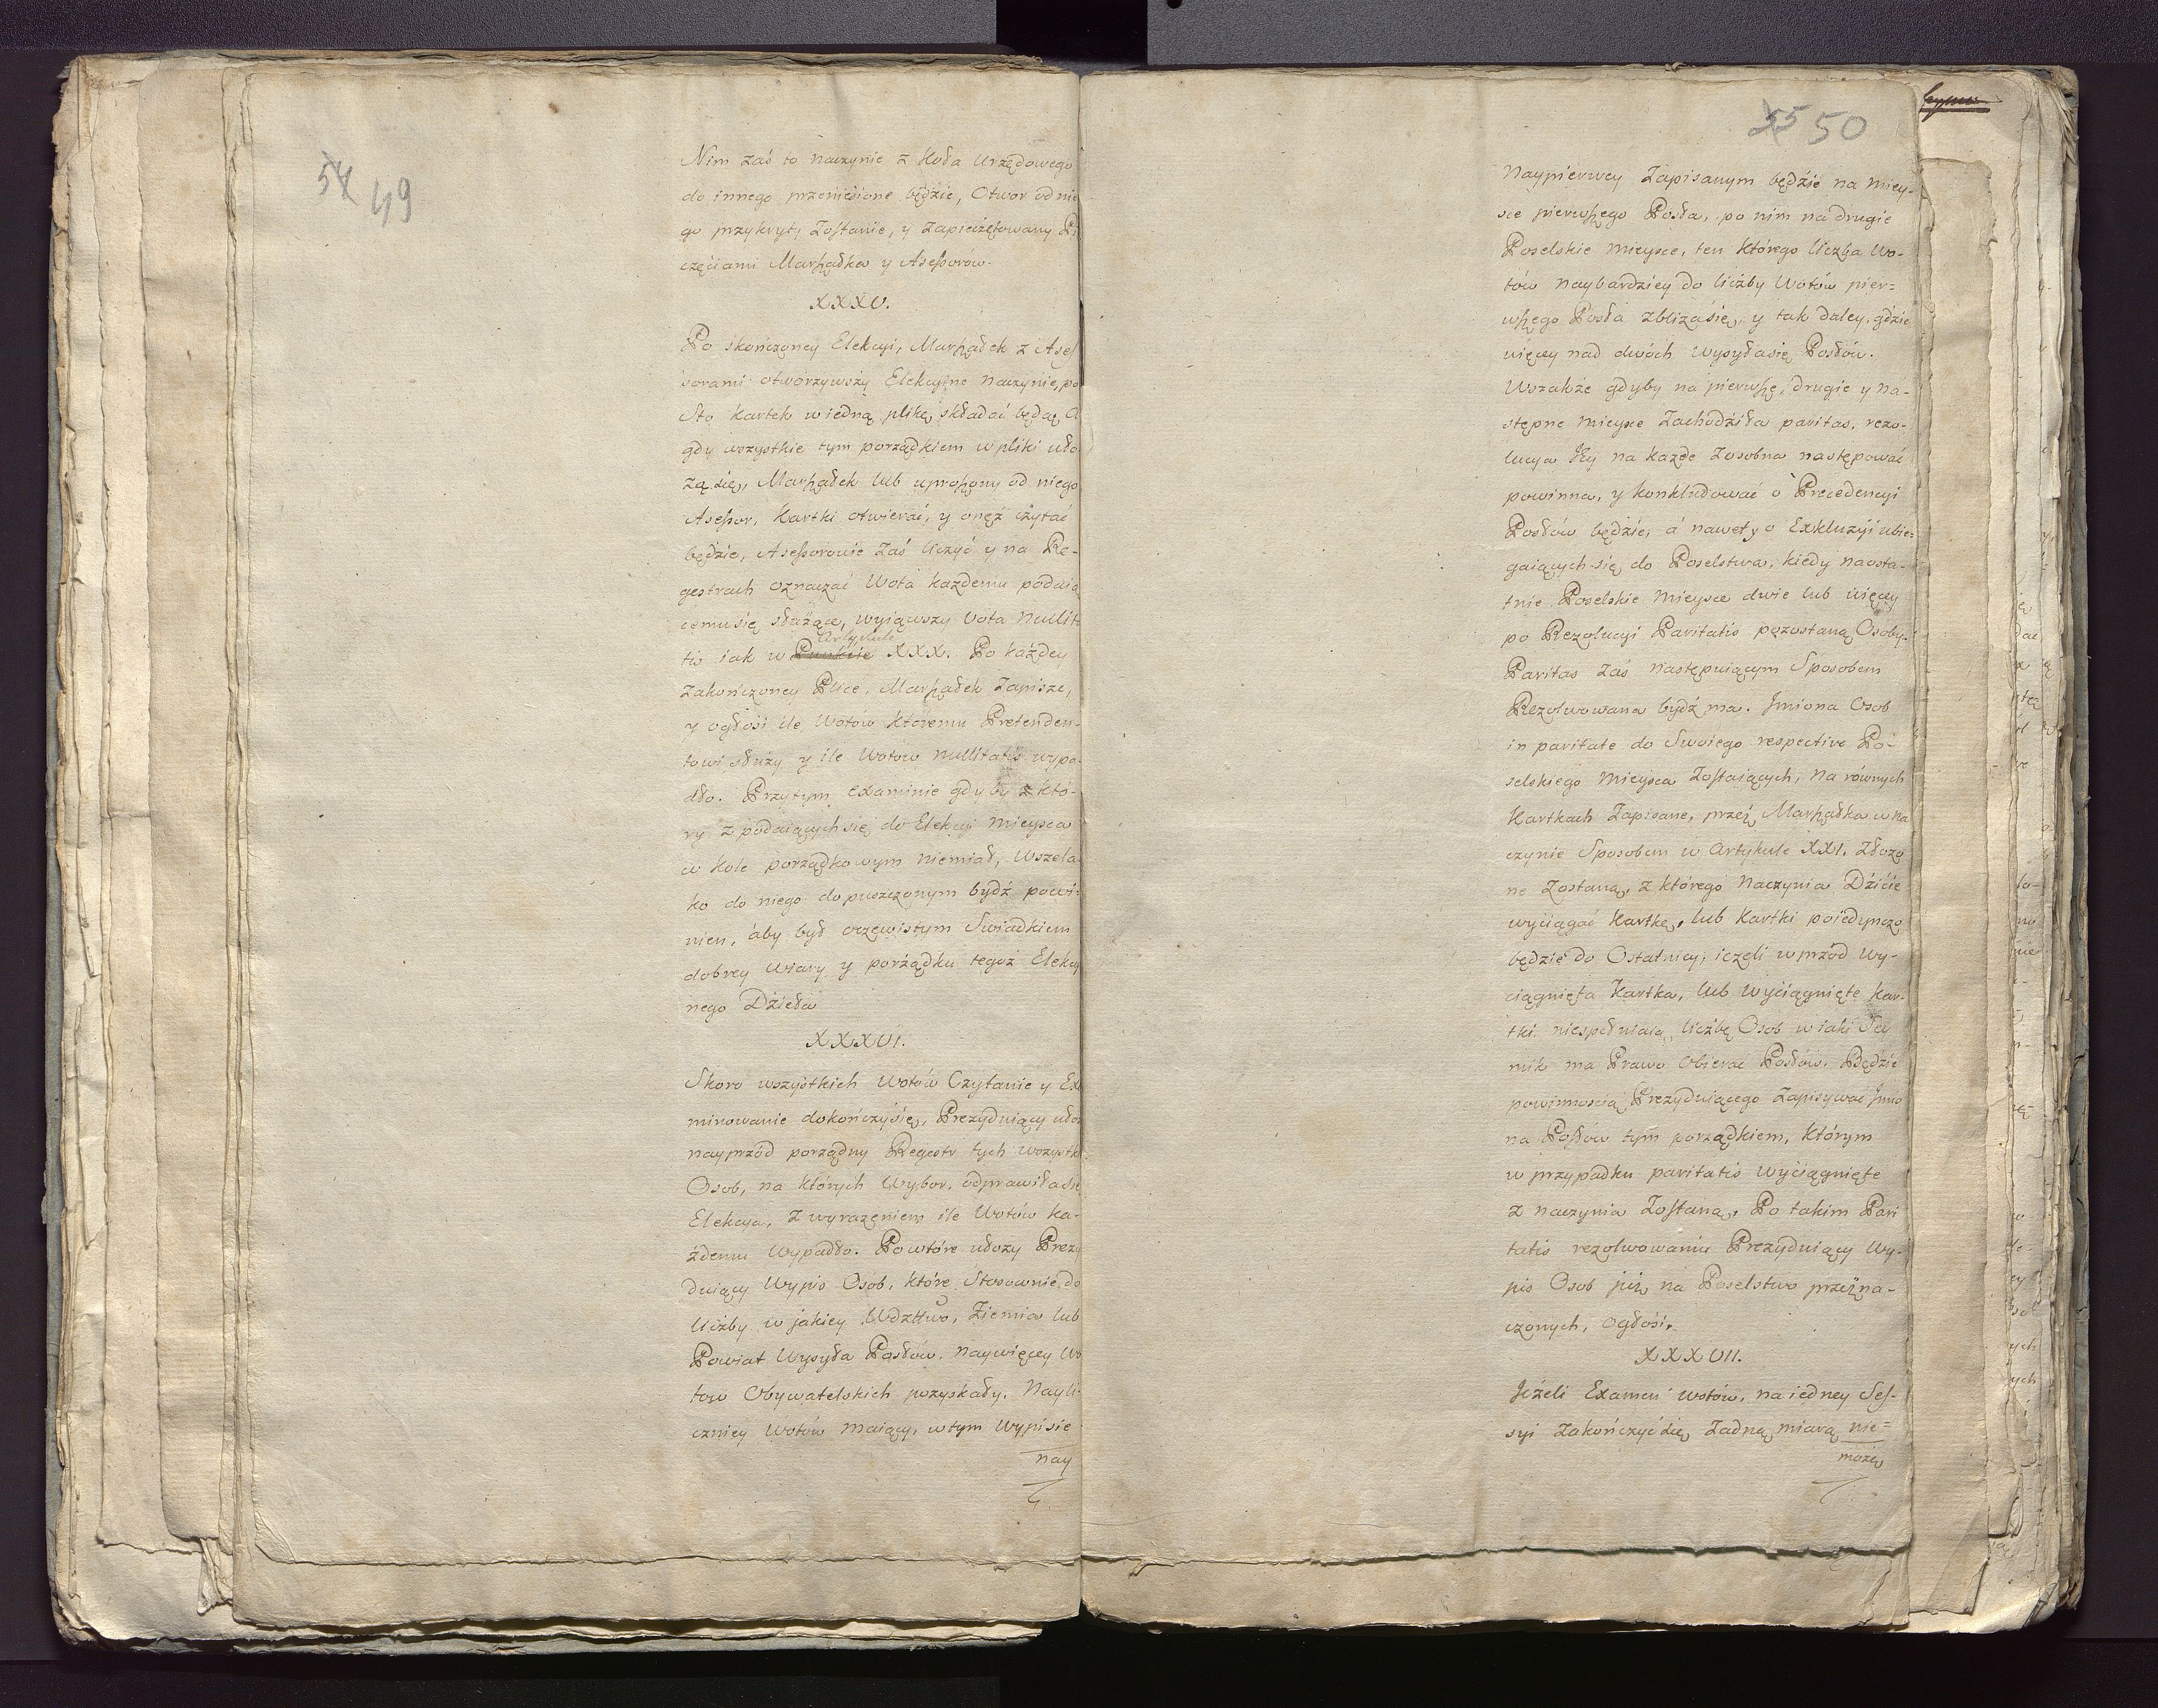 54 49
Nim zaś to naczynie z Koła Urzędowego
do innego przeniesione będzie, Otwor od nie
go przykryty Zostanie, y zapieczętowany Pi
częciami Marszałka y Assessorów.
XXXV.
Po skończoney Elekcyi, Marszałek z Asses
sorami otworzywszy Elekcyine naczynie, po
Sto Kartek w iedną plikę składać będą, a
gdy wszystkie tym porządkiem w pliki uło
żą się, Marszałek lub uproszony od niego
Assessor, Kartki otwierać, y onęż czytać
będzie, Assessorowie zaś liczyć y na Re-
gestrach oznaczać Wota każdemu podaią
cemu się służące, wyiąwszy Vota Nullita
Artykule
tis iak w Punkcie XXX. Po każdey
zakończoney Plice, Marszałek zapisze,
y ogłosi ile Wotów któremu Pretenden-
towi służy y ile Wotow nullitatis wypa-
dło. Przytym examinie gdyby z któ-
ry z podaiących się do Elekcyi mieysca
w kole porządkowym niemiał, Wszela-
ko do niego dopuszczonym bydź powi-
nien, aby był oczewistym Swiadkiem
dobrey wiary y porządku tegoż Elekcyi
nego Dzieła
XXXVI.
Skoro wszystkich Wotów Czytanie y Exa
minowanie dokończy się, Prezyduiący ułoż
nayprzód porządny Regestr tych wszystki
Osob, na których Wybor, odprawiła się
Elekcya, z wyrażeniem ile Wotów ka-
żdemu Wypadło. Powtóre ułoży Prezy
duiący Wypis Osob, które Stosownie do
liczby w jakiey Wdztwo, Ziemia lub
Powiat Wysyła Posłów, naywięcey Wo
tow Obywatelskich pozyskały. Nayli-
czniey Wotów maiący, wtym Wypisie
nay
55 50
Naypierwey Zapisanym będzie na miey-
sce pierwszego Posła, po nim na drugie
Poselskie mieysce, ten którego liczba Wo-
tów naybardziey do liczby Wotów pier=
wszego Posła zbliża się, y tak daley, gdzie
więcey nad dwóch wysyła się Posłów.
Wszakże gdyby na pierwsze, drugie y na-
stępne mieysce Zachodziła paritas, rezo-
lucya Jey na każde Zosobna następować
powinna, y konkludować o Precedencyi
Posłów będzie, a nawet y o Exkluzyi ubie=
gaiących się do Poselstwa, kiedy na osta-
tnie Poselskie Mieysce dwie lub więcey
po Rezolucyi Paritatis pozostaną Osoby.
Paritas zaś następuiącym Sposobem
Rezolwowana bydź ma. Jmiona Osob
in paritate do Swoiego respective Po-
selskiego Mieysca Zostaiących, na równych
Kartkach Zapisane, przez Marszałka w na
czynie Sposobem w Artykule XXI. złożo
ne zostaną, z którego Naczynia Dziecie
wyciągać Kartkę, lub Kartki poiedynczo
będzie do Ostatniey, ieżeli wprzód Wy-
ciągnięta Kartka, lub wyciągnięte Kar-
tki niespełniaią, liczbę Osob w iaki Sey
mik ma Prawo Obierać Posłów. Będzie
powinnoscią Prezyduiącego Zapisywać Jmio
na Posłów tym porządkiem, którym
w przypadku paritatis wyciągnięte
z naczynia Zostaną. Po takim Pari
tatis rezolwowaniu Prezyduiący Wy-
pis Osob już na Poselstwo przezna-
czonych, ogłosi.
XXXVII.
Jeżeli Examen wotów, na iedney Ses-
syi Zakończyć się żadną miarą nie=
może